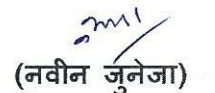 (नवीन जुनेजा)